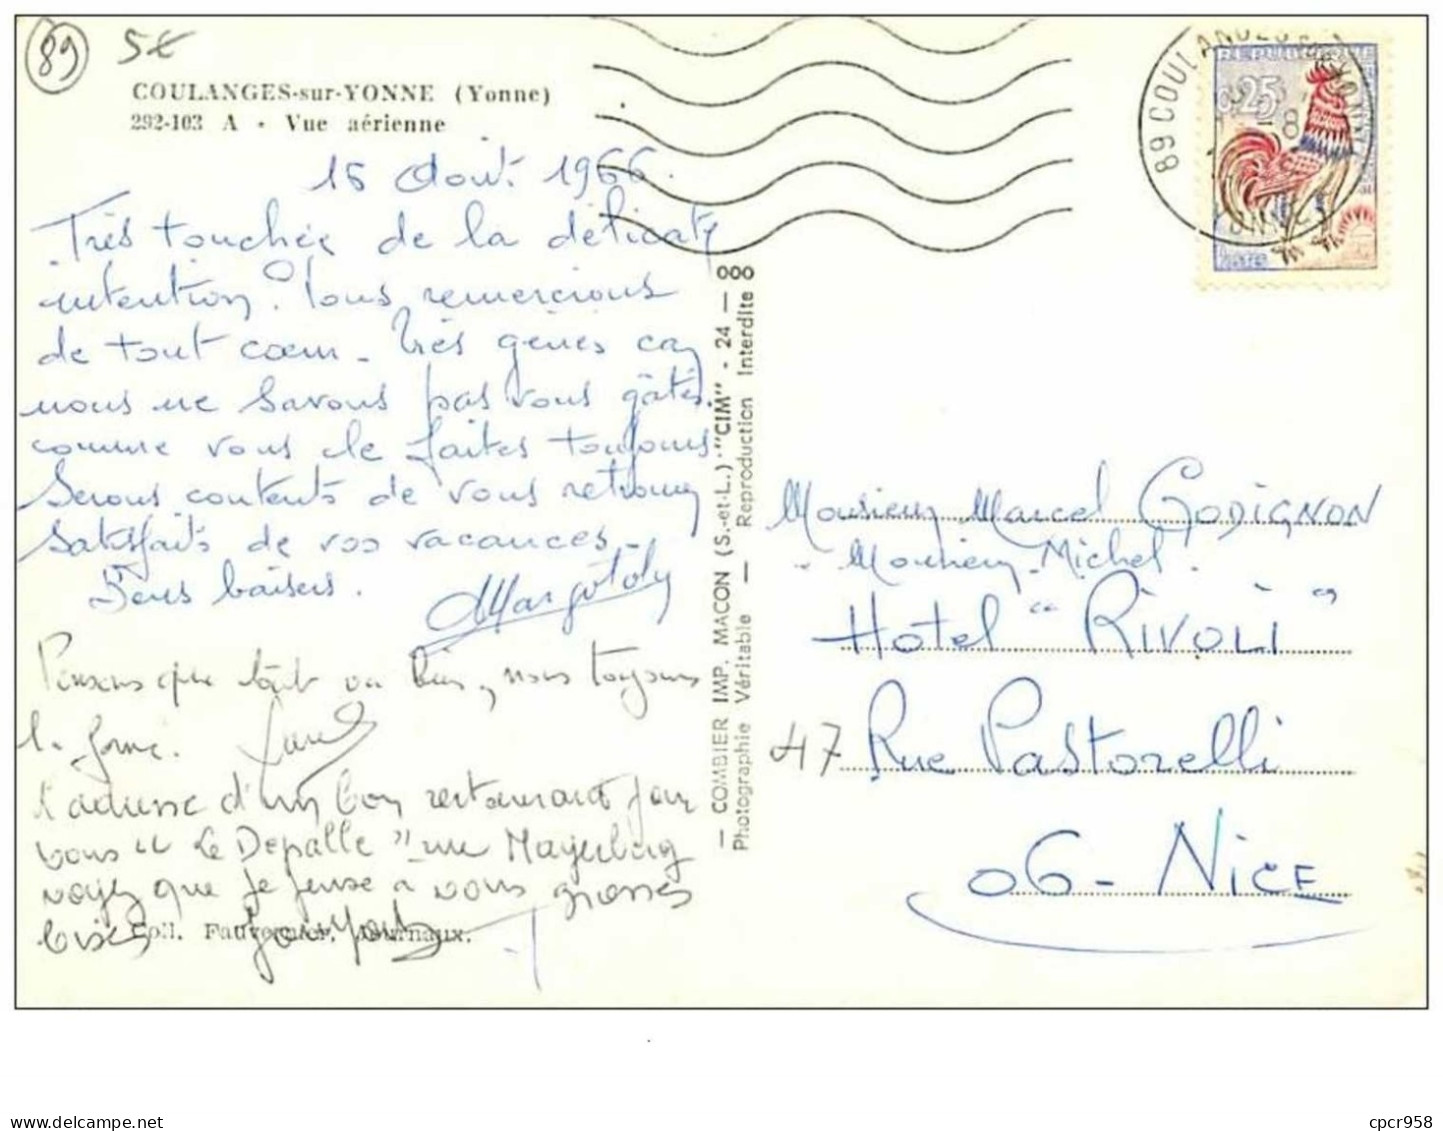 89 5€
COULANGES-sur-YONNE (Yonne)
292-103 A - Vue aérienne
15 Août 1966.
Très touchée de la délicate
intention. Vous remercions
de tout cœur - Très gênés car
nous ne savons pas vous gâter
comme vous le faites toujours.
Serons contents de vous retrouver
satisfaits de vos vacances -
Bons baisers.
Pensons que tout va bien, nous toujours
la forme.
l'adresse d'un bon restaurant pour
vous " Le Depalle " rue
voyez que je pense à vous grosses
bises
Coll. Fauvernier, Journaux.
— COMBIER IMP. MACON (S.-et-L.) "CIM" - 24 — 000
Photographie Véritable — Reproduction Interdite
89 COULANGES S. YONNE
YONNE
-8
REPUBLIQUE
0,25
POSTES
Monsieur Marcel GODIGNON
Monsieur Michel
Hotel "RIVOLI"
47 Rue Pastorelli
06 - NICE
cpcr958